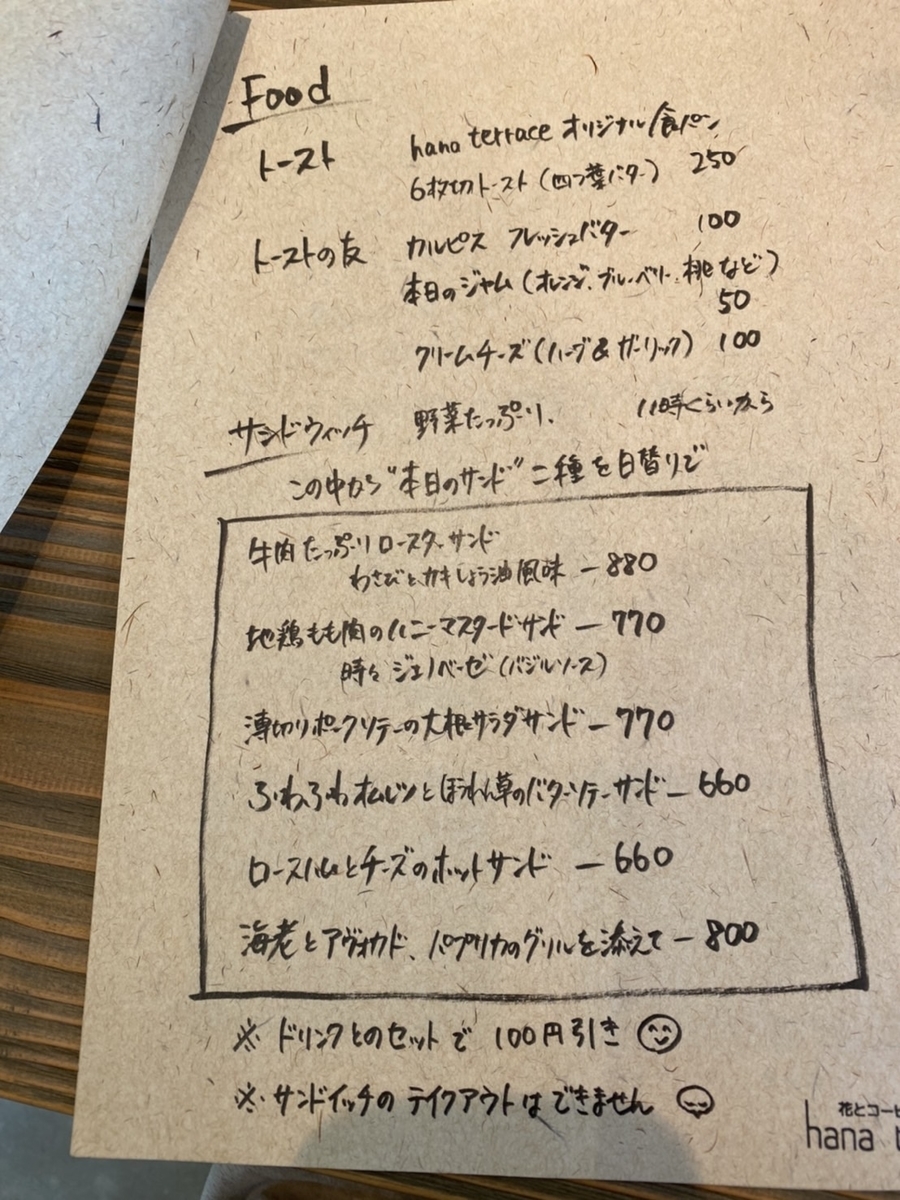 Food
トースト hana terrace オリジナル食パン
6枚切トースト(四つ葉バター) 250
トーストの友 カルピス フレッシュバター 100
本日のジャム(オレンジ、ブルーベリー、桃など)
50
クリームチーズ(ハーブ&ガーリック) 100
サンドウィッチ 野菜たっぷり、 11時くらいから
この中から"本日のサンド"二種を日替りで
牛肉たっぷりロースターサンド
わさびとカキしょう油風味 ー880
地鶏もも肉のハニーマスタードサンド ー770
時々 ジェノベーゼ(バジルソース)
薄切りポークソテーの大根サラダサンド ー770
ふわふわオムレツとほうれん草のバターソテーサンド ー 660
ロースハムとチーズのホットサンド ー660
海老とアヴォカド、パプリカのグリルを添えて ー800
※ ドリンクとのセットで 100円引き
※ サンドイッチの テイクアウトは できません
花とコー
hana